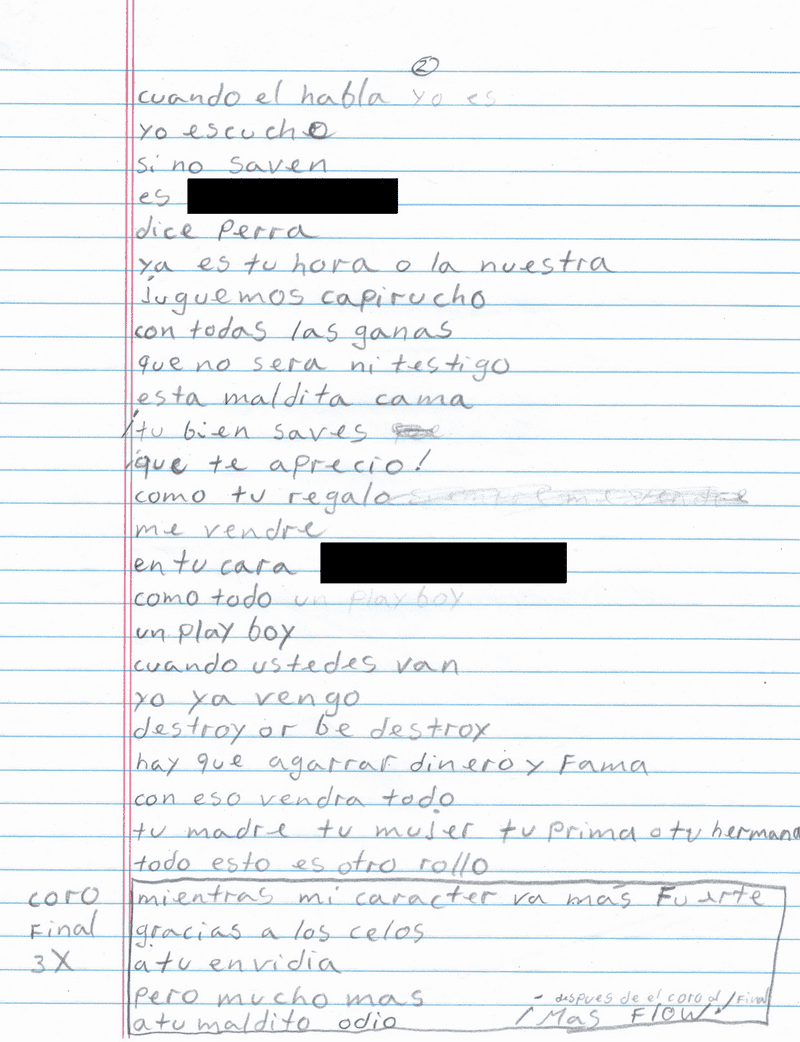 2
cuando el habla yo es
yo escucho
si no saven
es
dice perra
ya es tu hora o la nuestra
juguemos capirucho
con todas las ganas
que no sera ni testigo
esta maldita cama
tu bien saves
que te aprecio!
como tu regalo siempre me vendre
me vendre
en tu cara
como todo un play boy
un play boy
cuando ustedes van
yo ya vengo
destroy or be destroy
hay que agarrar dinero y Fama
con eso vendra todo
tu madre tu mujer tu prima o tu hermana
todo esto es otro rollo
coro mientras mi caracter va mas Fuerte
Final gracias a los celos
3X a tu envidia
pero mucho mas - despues de el coro al / Final
a tu maldito odio / Mas FLOW!